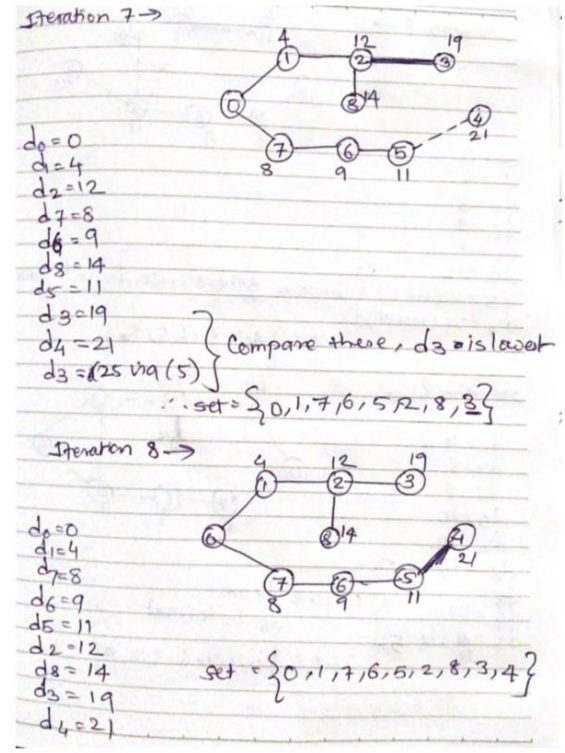 Iteration 7→
4 12 19
1 2 3
0 8 14 4
21
7 6 5
8 9 11
d0=0
d1=4
d2=12
d7=8
d6=9
d8=14
d5=11
d3=19
d4=21
d3=(25 via (5)
} Compare these, d3 is lowest
∴ set = {0,1,7,6,5,2,8,3}
Iteration 8→
4 12 19
1 2 3
0 8 14 4
21
7 6 5
8 9 11
d0=0
d1=4
d7=8
d6=9
d5=11
d2=12
d8=14
d3=19
d4=21
set = {0,1,7,6,5,2,8,3,4}